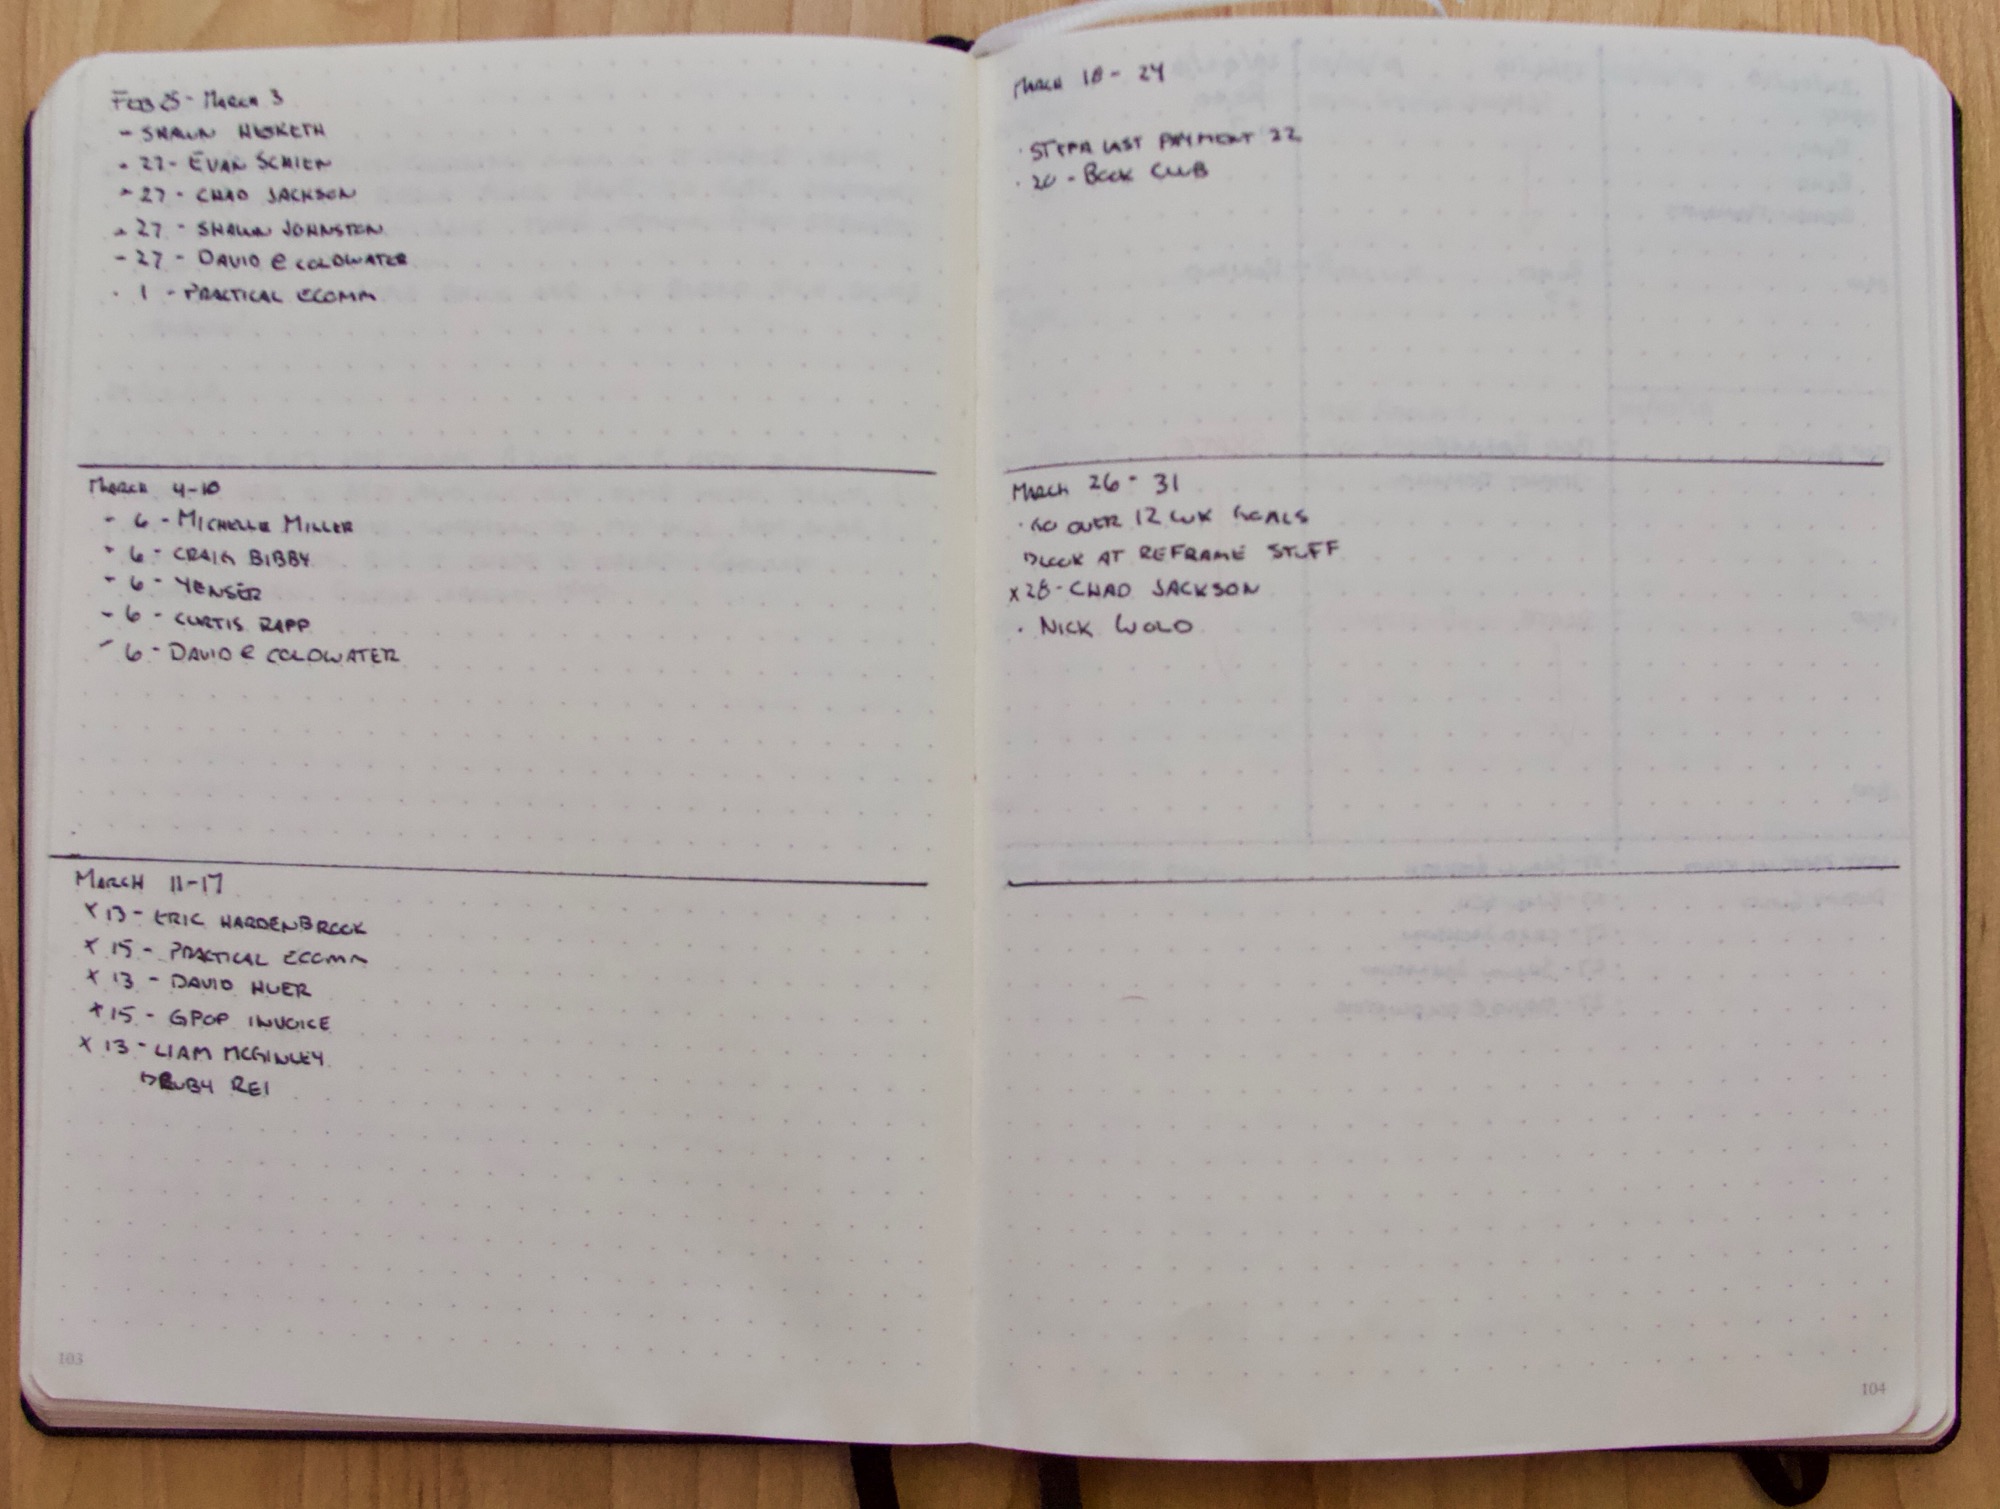 Feb 25 - March 3
- Shaun Hesketh
- 27 - Evan Schien
- 27 - Chad Jackson
- 27 - Shawn Johnston
- 27 - David @ Coldwater
· 1 - Practical Ecomm
March 4-10
- 6 - Michelle Miller
- 6 - Craig Bibby
- 6 - Yenser
- 6 - Curtis Rapp
- 6 - David @ Coldwater
March 11-17
x 13 - Eric Hardenbrook
x 15 - Practical Ecomm
x 13 - David Huer
x 15 - GPOP Invoice
x 13 - Liam McGinley
Ruby Rei
103
March 18 - 24
· Last Payment 22
· 20 - Book Club
March 26 - 31
· Go over 12 wk goals
Look at Reframe Stuff
x 28 - Chad Jackson
· Nick Wolo
104